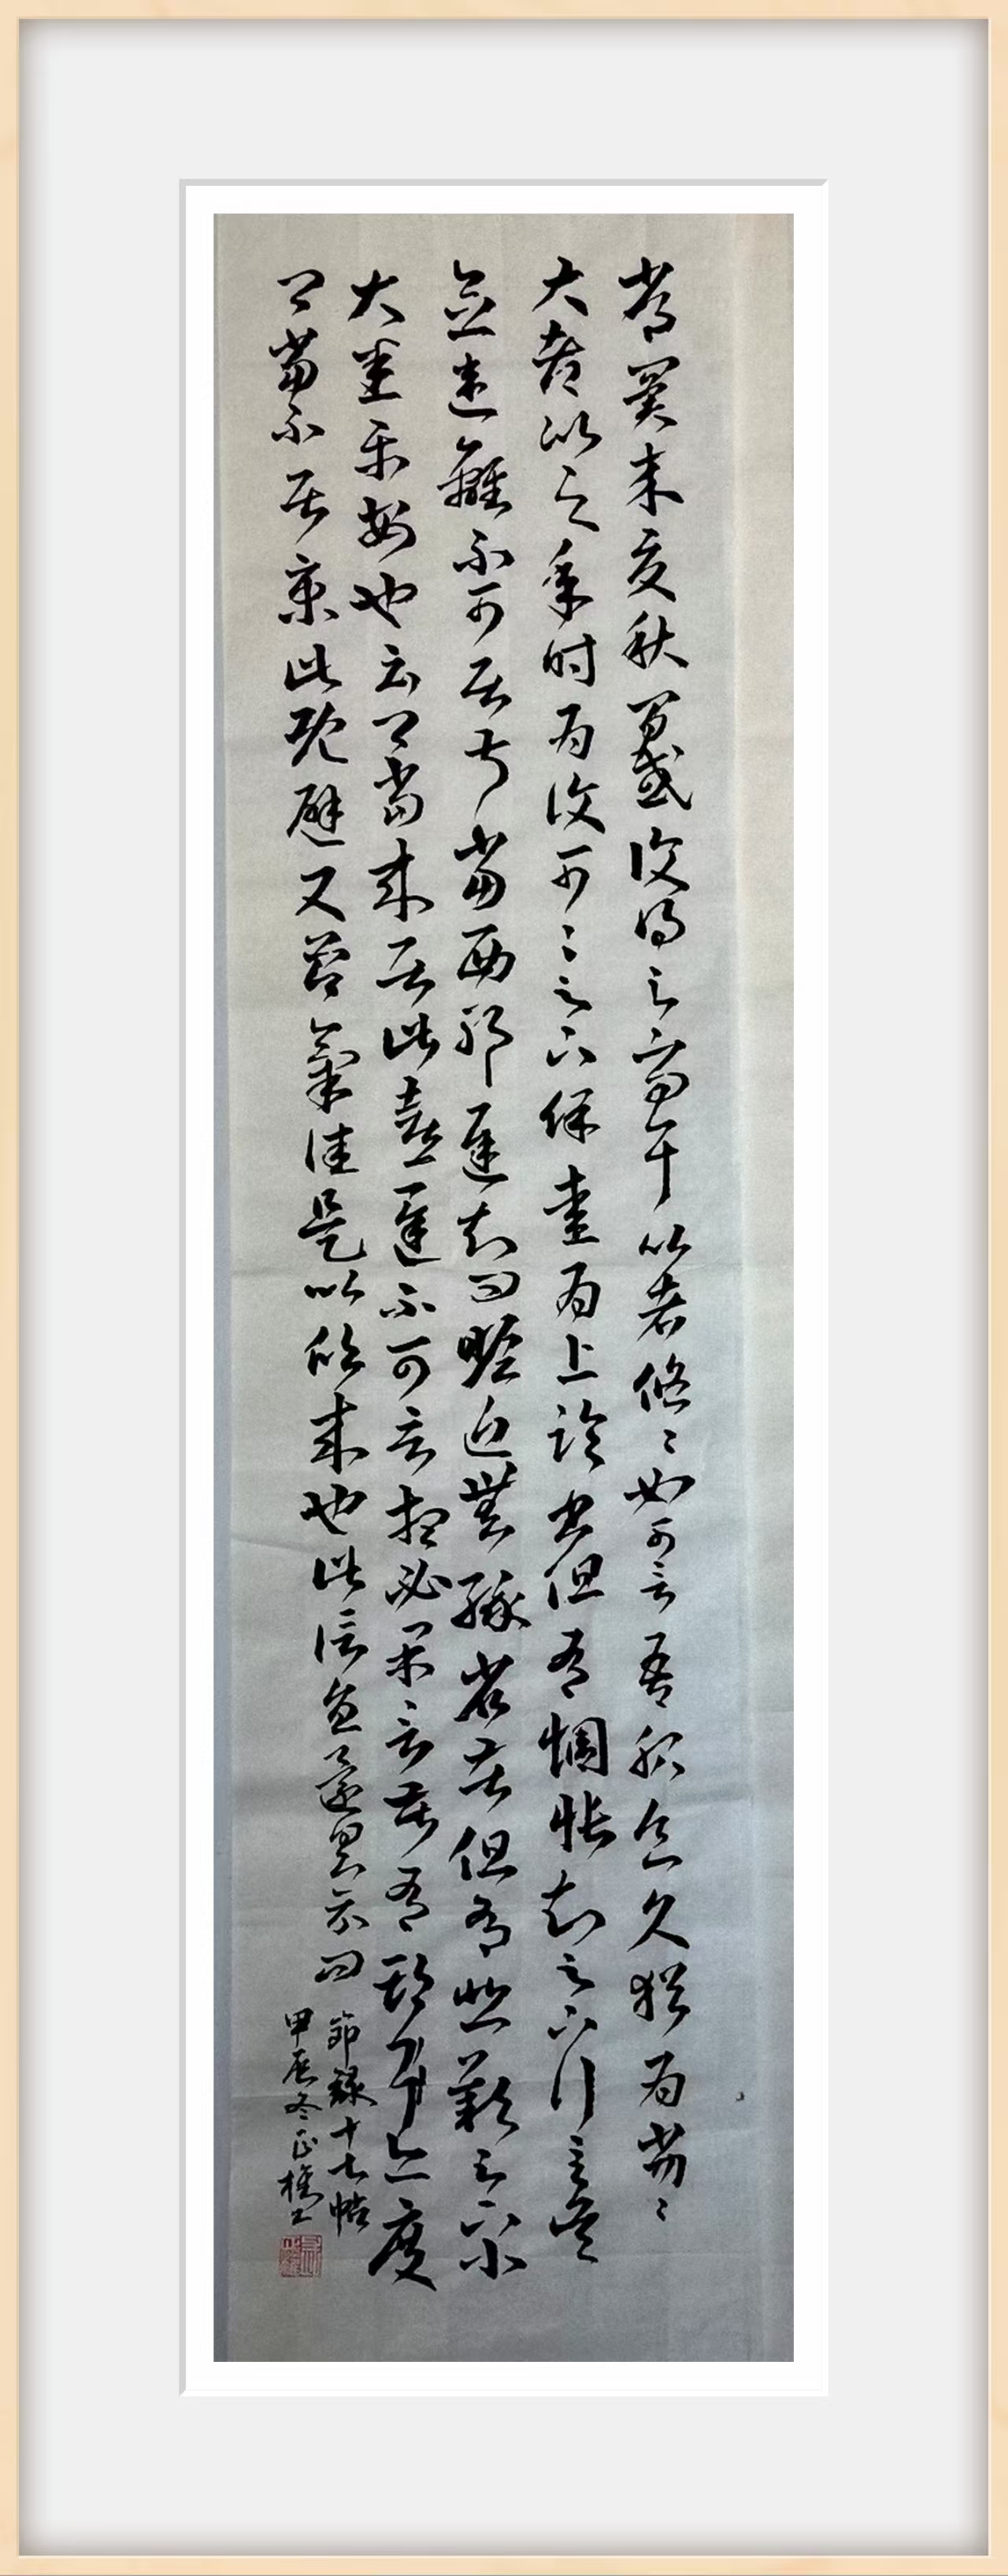 常冀來夏秋間或復得足下問耳比者悠悠如何可言吾服食久猶為劣劣
大都比之年時為復可可足下保愛為上臨書但有惆悵知足下行至吳
念違離不可居叔當西耶遲知問瞻近無緣省苦但有悲歎足下小
大悉平安也云卿當來居此喜遲不可言想必果言苦有期耳亦度
卿當不居京此既避又節氣佳是以欣卿來也此信旨還具示問
節錄十七帖
甲辰冬正